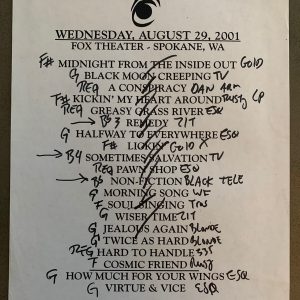 WEDNESDAY, AUGUST 29, 2001
FOX THEATER - SPOKANE, WA
F# MIDNIGHT FROM THE INSIDE OUT GOLD
G BLACK MOON CREEPING TV
REG A CONSPIRACY DAN ARM
F# KICKIN' MY HEART AROUND RUSTY LP
REG GREASY GRASS RIVER ESQ
→ B5 3 REMEDY ZIT
G HALFWAY TO EVERYWHERE ESQ
F# LICKIN' GOLD X
→ B4 SOMETIMES SALVATION TV
REG PAWN SHOP ESQ
→ B5 NON-FICTION BLACK TELE
G MORNING SONG WF
F SOUL SINGING TEN
G WISER TIME ZIT
G JEALOUS AGAIN BLONDE
G TWICE AS HARD BLONDE
REG HARD TO HANDLE 335
F COSMIC FRIEND RUSTY
G HOW MUCH FOR YOUR WINGS ESQ
G VIRTUE & VICE ESQ